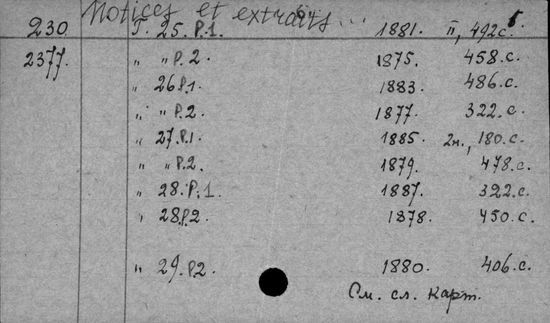 Notices et extraits...
230 T. 25. P.1. 1881. II, 492 c.
2377. " " P. 2 1875. 458. c.
" 26 P.1 1883. 486. c.
" " P.2 1877. 322. c.
" 27. P.1 1885. 2н., 180. c.
" " P.2. 1879. 478. c.
" 28. P. 1. 1887. 322. c.
" 28 P.2 1878. 450. c.
" 29. P.2 1880. 406. c.
См. сл. карт.